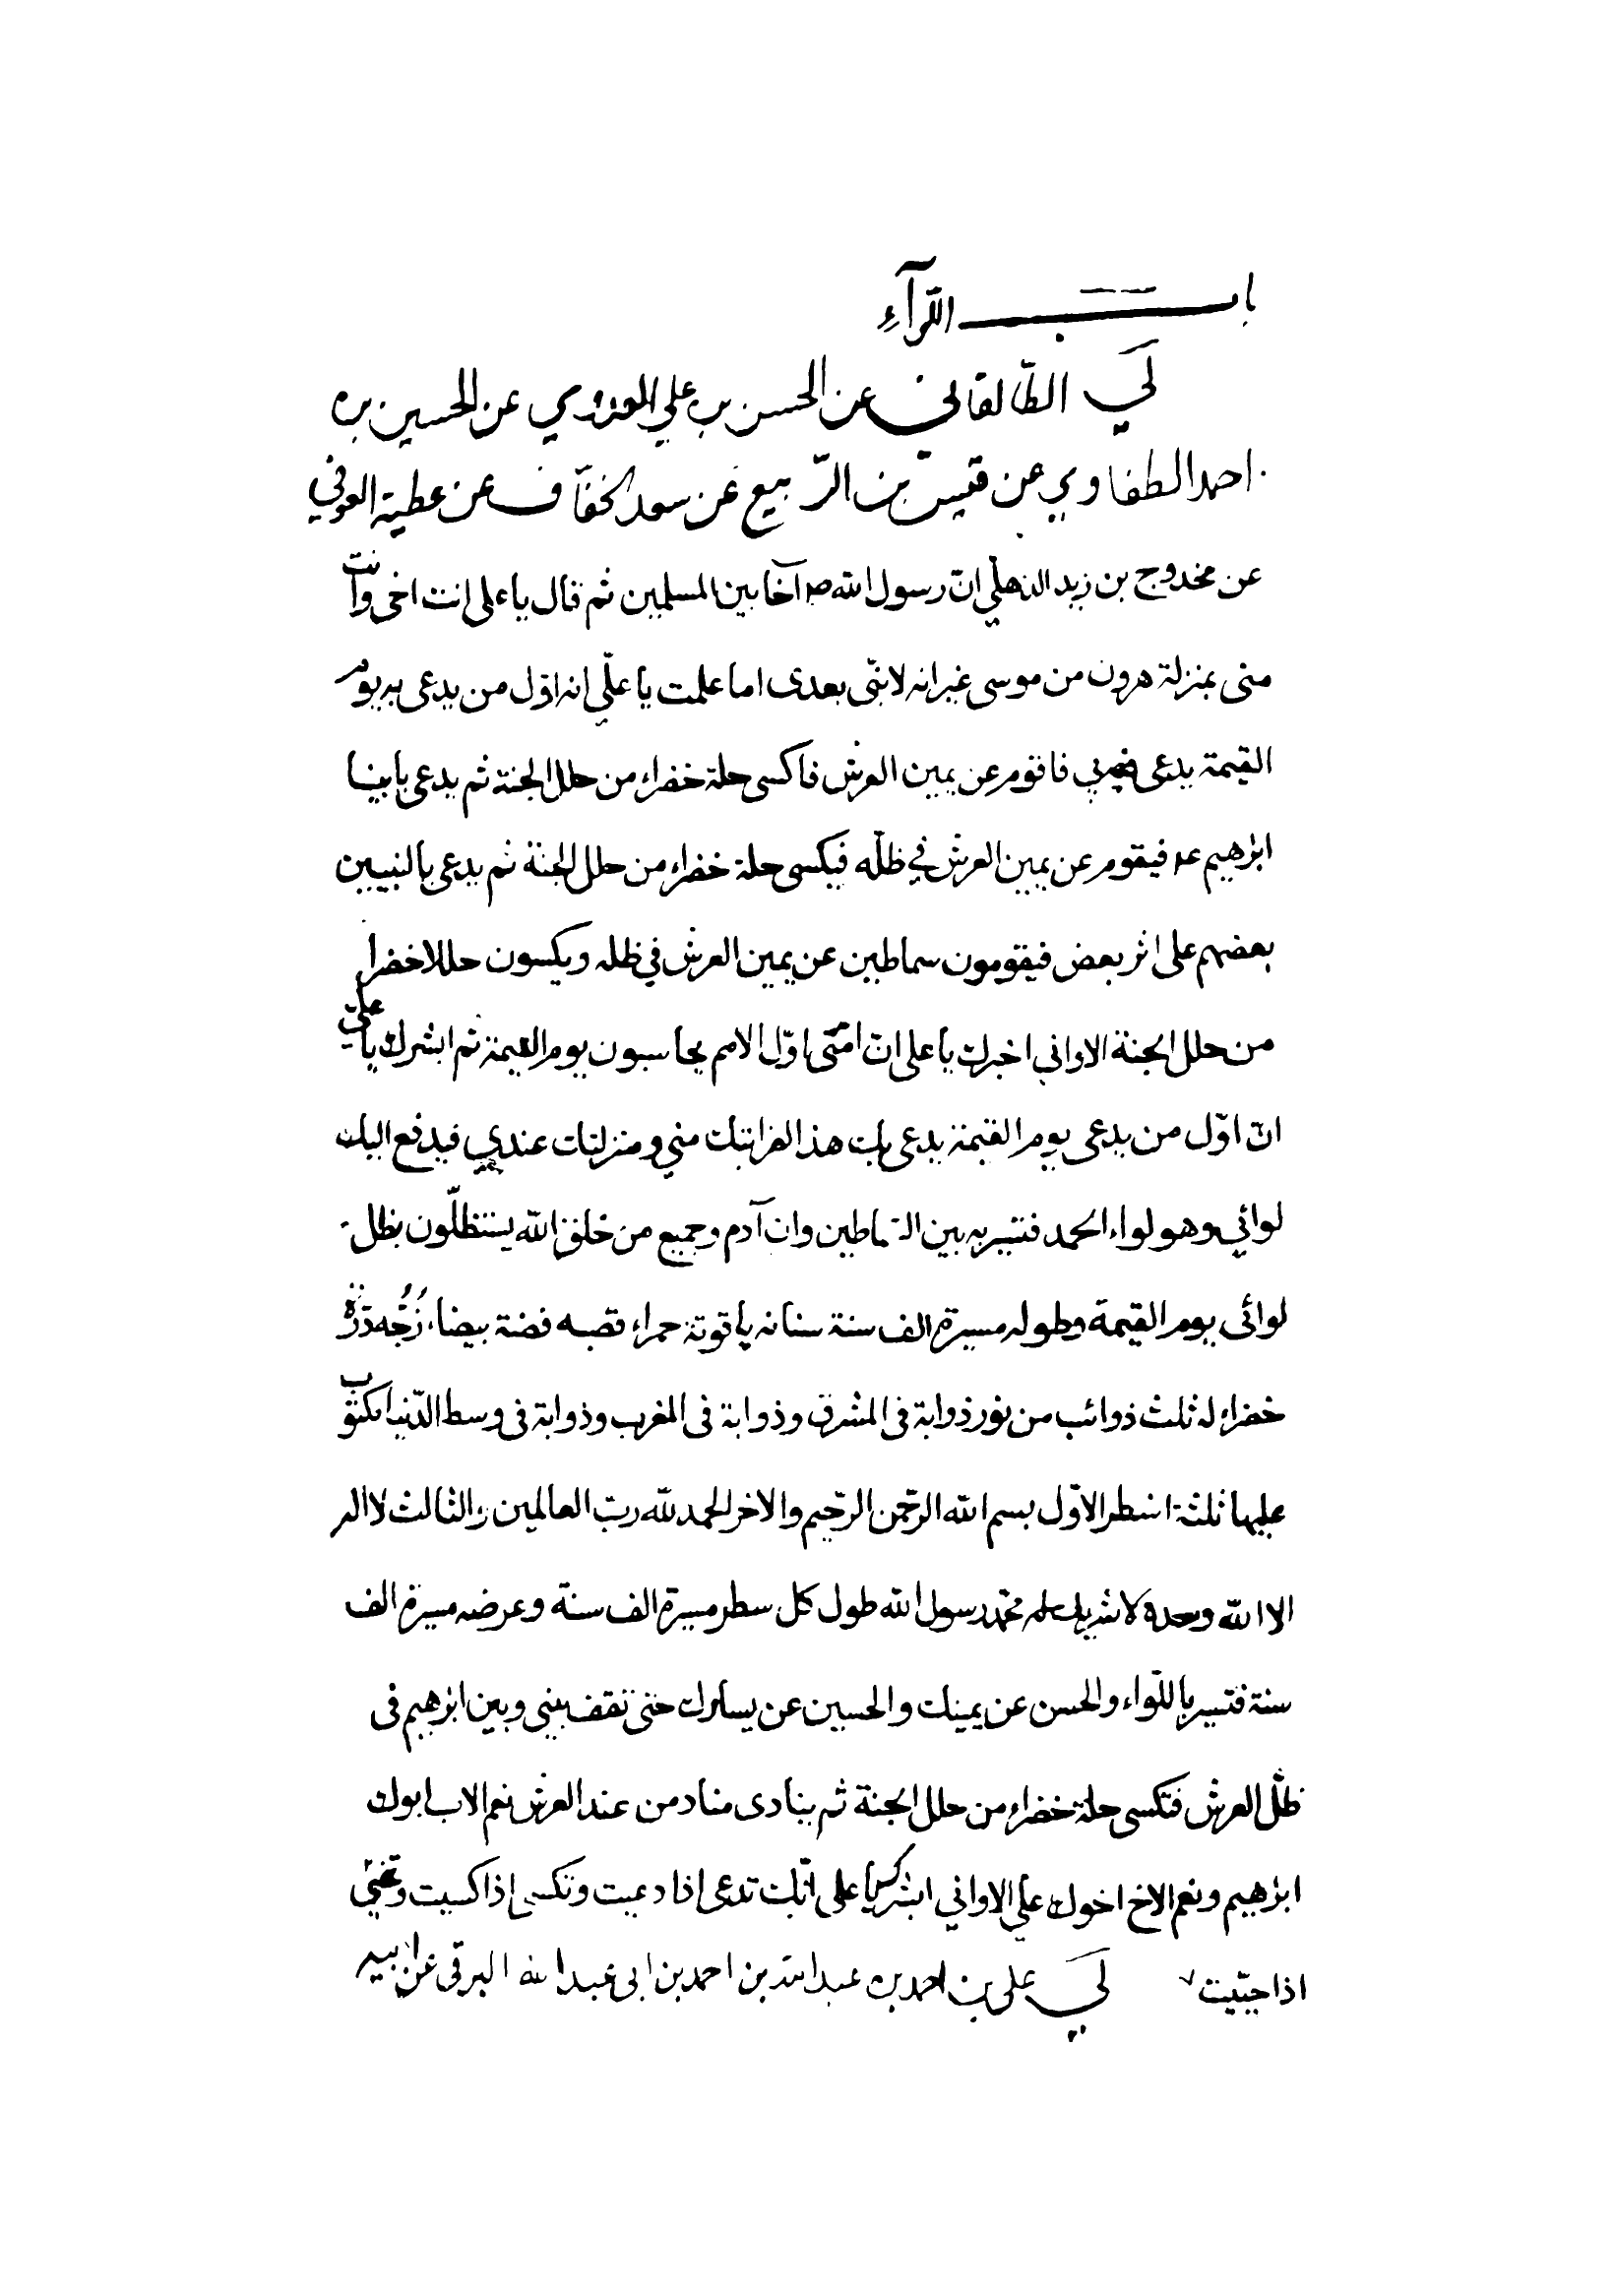 باب اللوآء
لي الطالقاني عن الحسن بن علي العدوي عن الحسين بن
احمد الطفاوي عن قيس بن الرّبيع عن سعد الخفّاف عن عطية العوفي
عن مخدوج بن زيد الذهلي انّ رسول الله ص آخا بين المسلمين ثم قال يا علي انت اخي وانت
مني بمنزلة هرون من موسى غير انه لا نبّي بعدي اما علمت يا علّي انه اوّل من يدعى به يوم
القيمة يدعى بي فاقوم عن يمين العرش فاكسى حلة خضراء من حلل الجنة ثم يدعى بابينا
ابرهيم ع فيقوم عن يمين العرش في ظلّه فيكسى حلة خضراء من حلل الجنة ثم يدعى بالنبيين
بعضهم على اثر بعض فيقومون سماطين عن يمين العرش في ظله ويكسون حللا خضرا
من حلل الجنة الا واني اخبرك يا علي انّ امتي اوّل الامم يحاسبون يوم القيمة ثم ابشرك يا علّي
انّ اوّل من يدعى يوم القيمة يدعى بك هذا لقرابتك مني ومنزلتك عندي فيدفع اليك
لوائي وهو لواء الحمد فتسير به بين السّماطين وان آدم وجميع من خلق الله يستظلّون بظل
لوائي يوم القيمة وطوله مسيرة الف سنة سنانه ياقوتة حمراء قصبه فضة بيضاء زُجُّه درّة
خضراء له ثلث ذوائب من نور ذوابة في المشرق وذوابة في المغرب وذوابة في وسط الدّنيا مكتوب
عليها ثلثة اسطر الاوّل بسم الله الرّحمن الرّحيم والاخر الحمد لله ربّ العالمين والثالث لا اله
الا الله وحده لا شريك له محمّد رسول الله طول كل سطر مسيرة الف سنة وعرضه مسيرة الف
سنة فتسير باللّواء والحسن عن يمينك والحسين عن يسارك حتى تقف بيني وبين ابرهيم في
ظلّ العرش فتكسى حلة خضراء من حلل الجنة ثم ينادى مناد من عند العرش نعم الاب ابوك
ابرهيم ونعم الاخ اخوك علي الا واني ابشرك يا علي انّك تدعى اذا دعيت وتكسى اذا كسيت وتحيّى
اذا حيّيت لي علي بن احمد بن عبدالله بن احمد بن ابي عبدالله البرقي عن ابيه